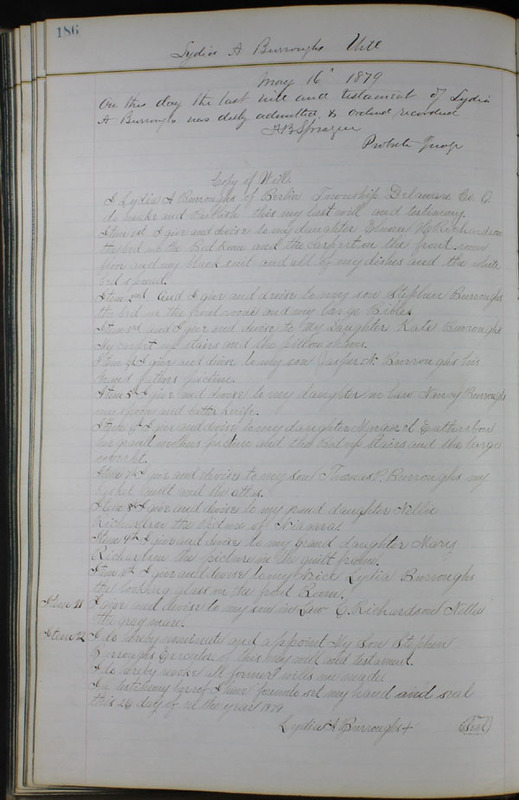 186
Lydia A Burroughs Will
May 16" 1879
On this day the last will and testament of Lydia
A Burroughs was duly admitted & ordered recorded
Probate Judge
Copy of Will
I Lydia A Burroughs of Berlin Township Delaware Co. O.
do make and Publish this my last will and
Item 1st I give and devise to my daughter Richardson
the bed in the Bed Room and the Carpet on the front room
floor and my black suit and all of my dishes and the white
bed spread.
Item 2nd And I give and devise to my son Stephen Burroughs
the bed in the front room and my large Bible
Item 3rd and I give and devise to My daughter Kate Burroughs
My carpet up stairs and the pillow
Item 4th I give and devise to my son Jasper N. Burroughs his
Grand fathers picture.
Item 5th I give and devise to my daughter in law Nancy Burroughs
my spoons and butter knife.
Item 6th I give and devise to my daughter
her grand mothers picture and the bed up stairs and the large
Item 7th I give and devise to my son Thomas P. Burroughs my
quilt and the atlas.
Item 8th I give and devise to my grand daughter Nellie
Richardson the picture of
Item 9th I give and devise to my grand daughter Mary
Richardson the picture in the guilt frame.
Item 10th I give and devise to my Niece Lydia Burroughs
the looking glass in the front Room.
Item 11 I give and devise to my son in Law G. Richardson Nellie
the gray mare.
Item 12 I do hereby nominate and appoint My Son Stephen
Burroughs Executor of this my will and testament.
I do hereby revoke all former wills me made
In testimony hereof I have set my hand and seal
this 26 day of in the year 1879
Lydia A Burroughs + (Seal)